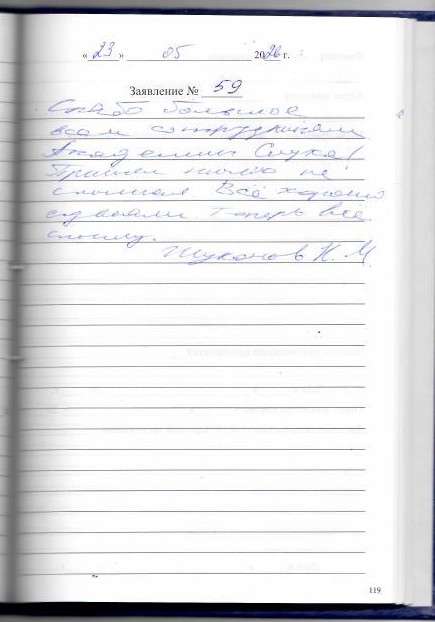 «23» 05 2026 г.
Заявление № 59
Спасибо большое
всем сотрудникам
Академии Слуха!
Пришел ничего не
слышал Всё хорошо
сделали теперь все
слышу.
Жуканов К. М.
119